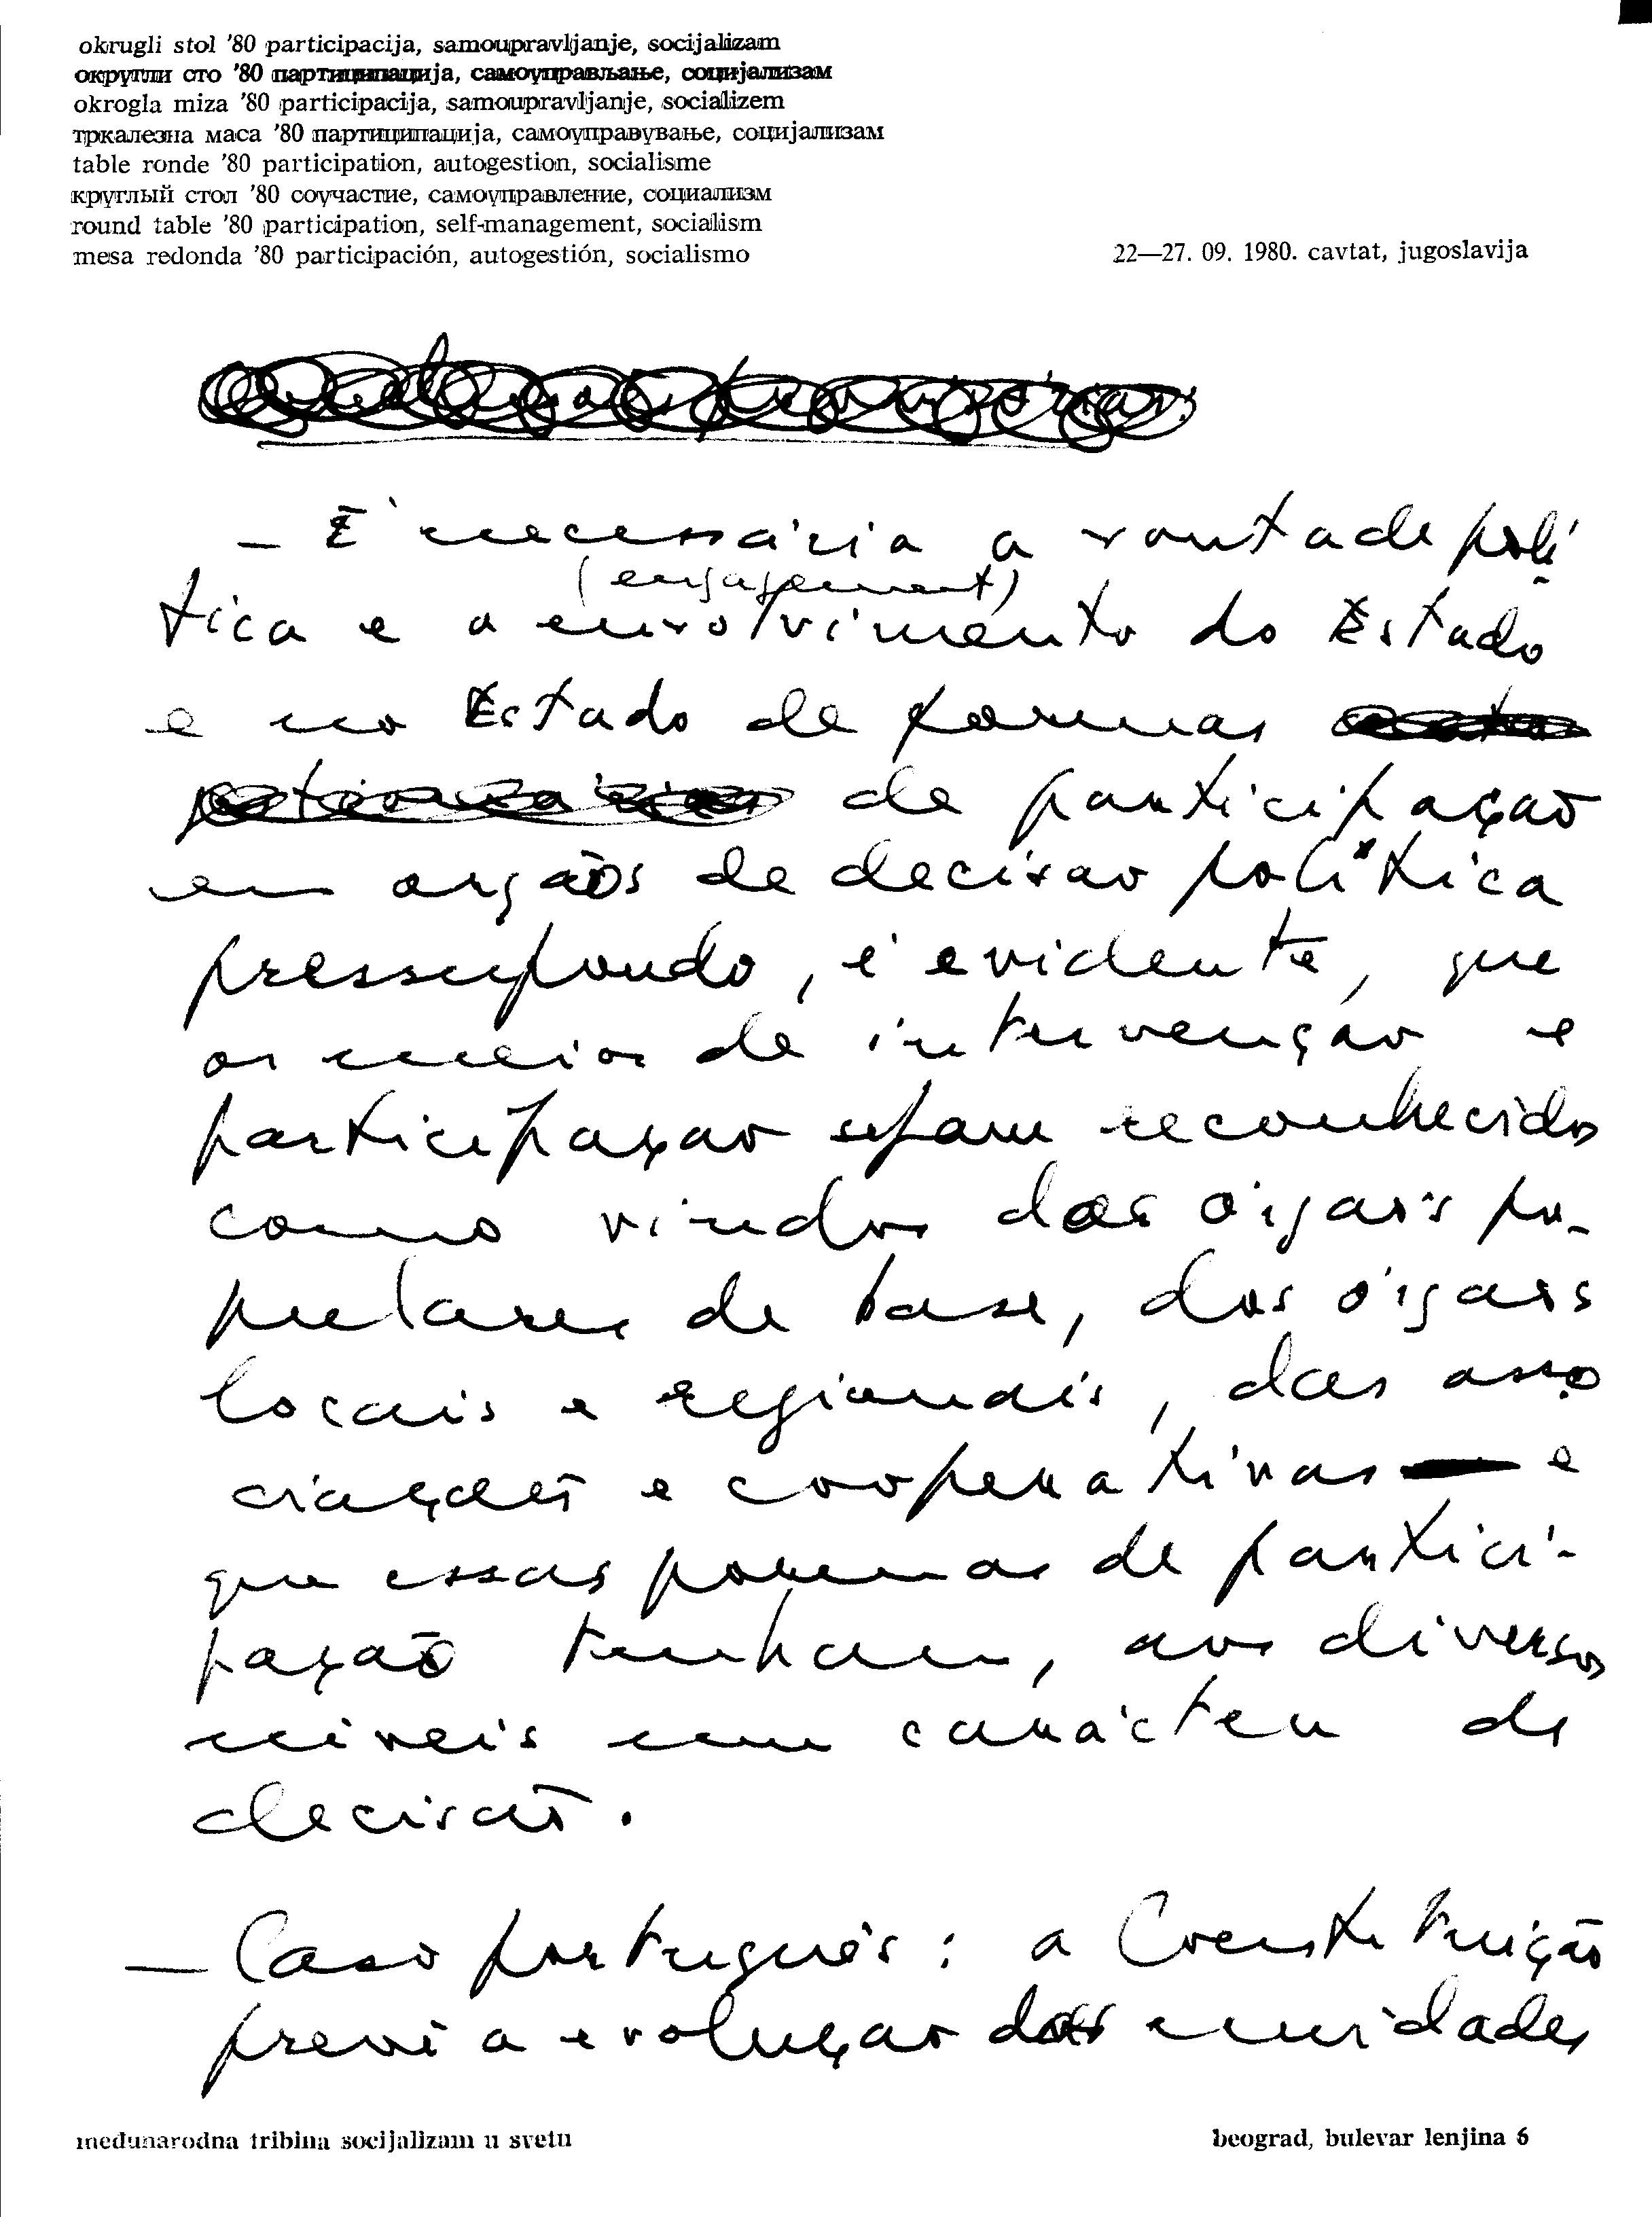 okrugli stol '80 participacija, samoupravljanje, socijalizam
округли сто '80 партиципација, самоуправљање, социјализам
okrogla miza '80 participacija, samoupravljanje, socializem
тркалезна маса '80 партиципација, самоуправување, социјализам
table ronde '80 participation, autogestion, socialisme
круглый стол '80 соучастие, самоуправление, социализм
round table '80 participation, self-management, socialism
mesa redonda '80 participación, autogestión, socialismo
22—27. 09. 1980. cavtat, jugoslavija
— É necessária a vontade polí
(engagement)
tica e o envolvimento do Estado
e no Estado de formas
de participação
em orgãos de decisão política
pressupondo, é evidente, que
os meios de intervenção e
participação sejam reconhecidos
como vindos dos órgãos po-
pulares de base, dos órgãos
locais e regionais, das asso
ciações e cooperativas e
que essas formas de partici-
pação tenham, aos diversos
níveis um carácter de
decisão.
— Caso português: a Constituição
prevê a evolução das unidades
međunarodna tribina socijalizam u svetu
beograd, bulevar lenjina 6